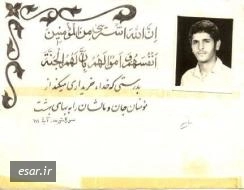 اِنَّ اللهَ اشْتَرىٰ مِنَ الْمُؤْمِنينَ
اَنْفُسَهُمْ وَ اَمْوالَهُمْ بِاَنَّ لَهُمُ الْجَنَّةَ
بدرستی که خداوند خریداری میکند از
مؤمنان جان و مالشان را به بهای بهشت
esar.ir
esar.ir